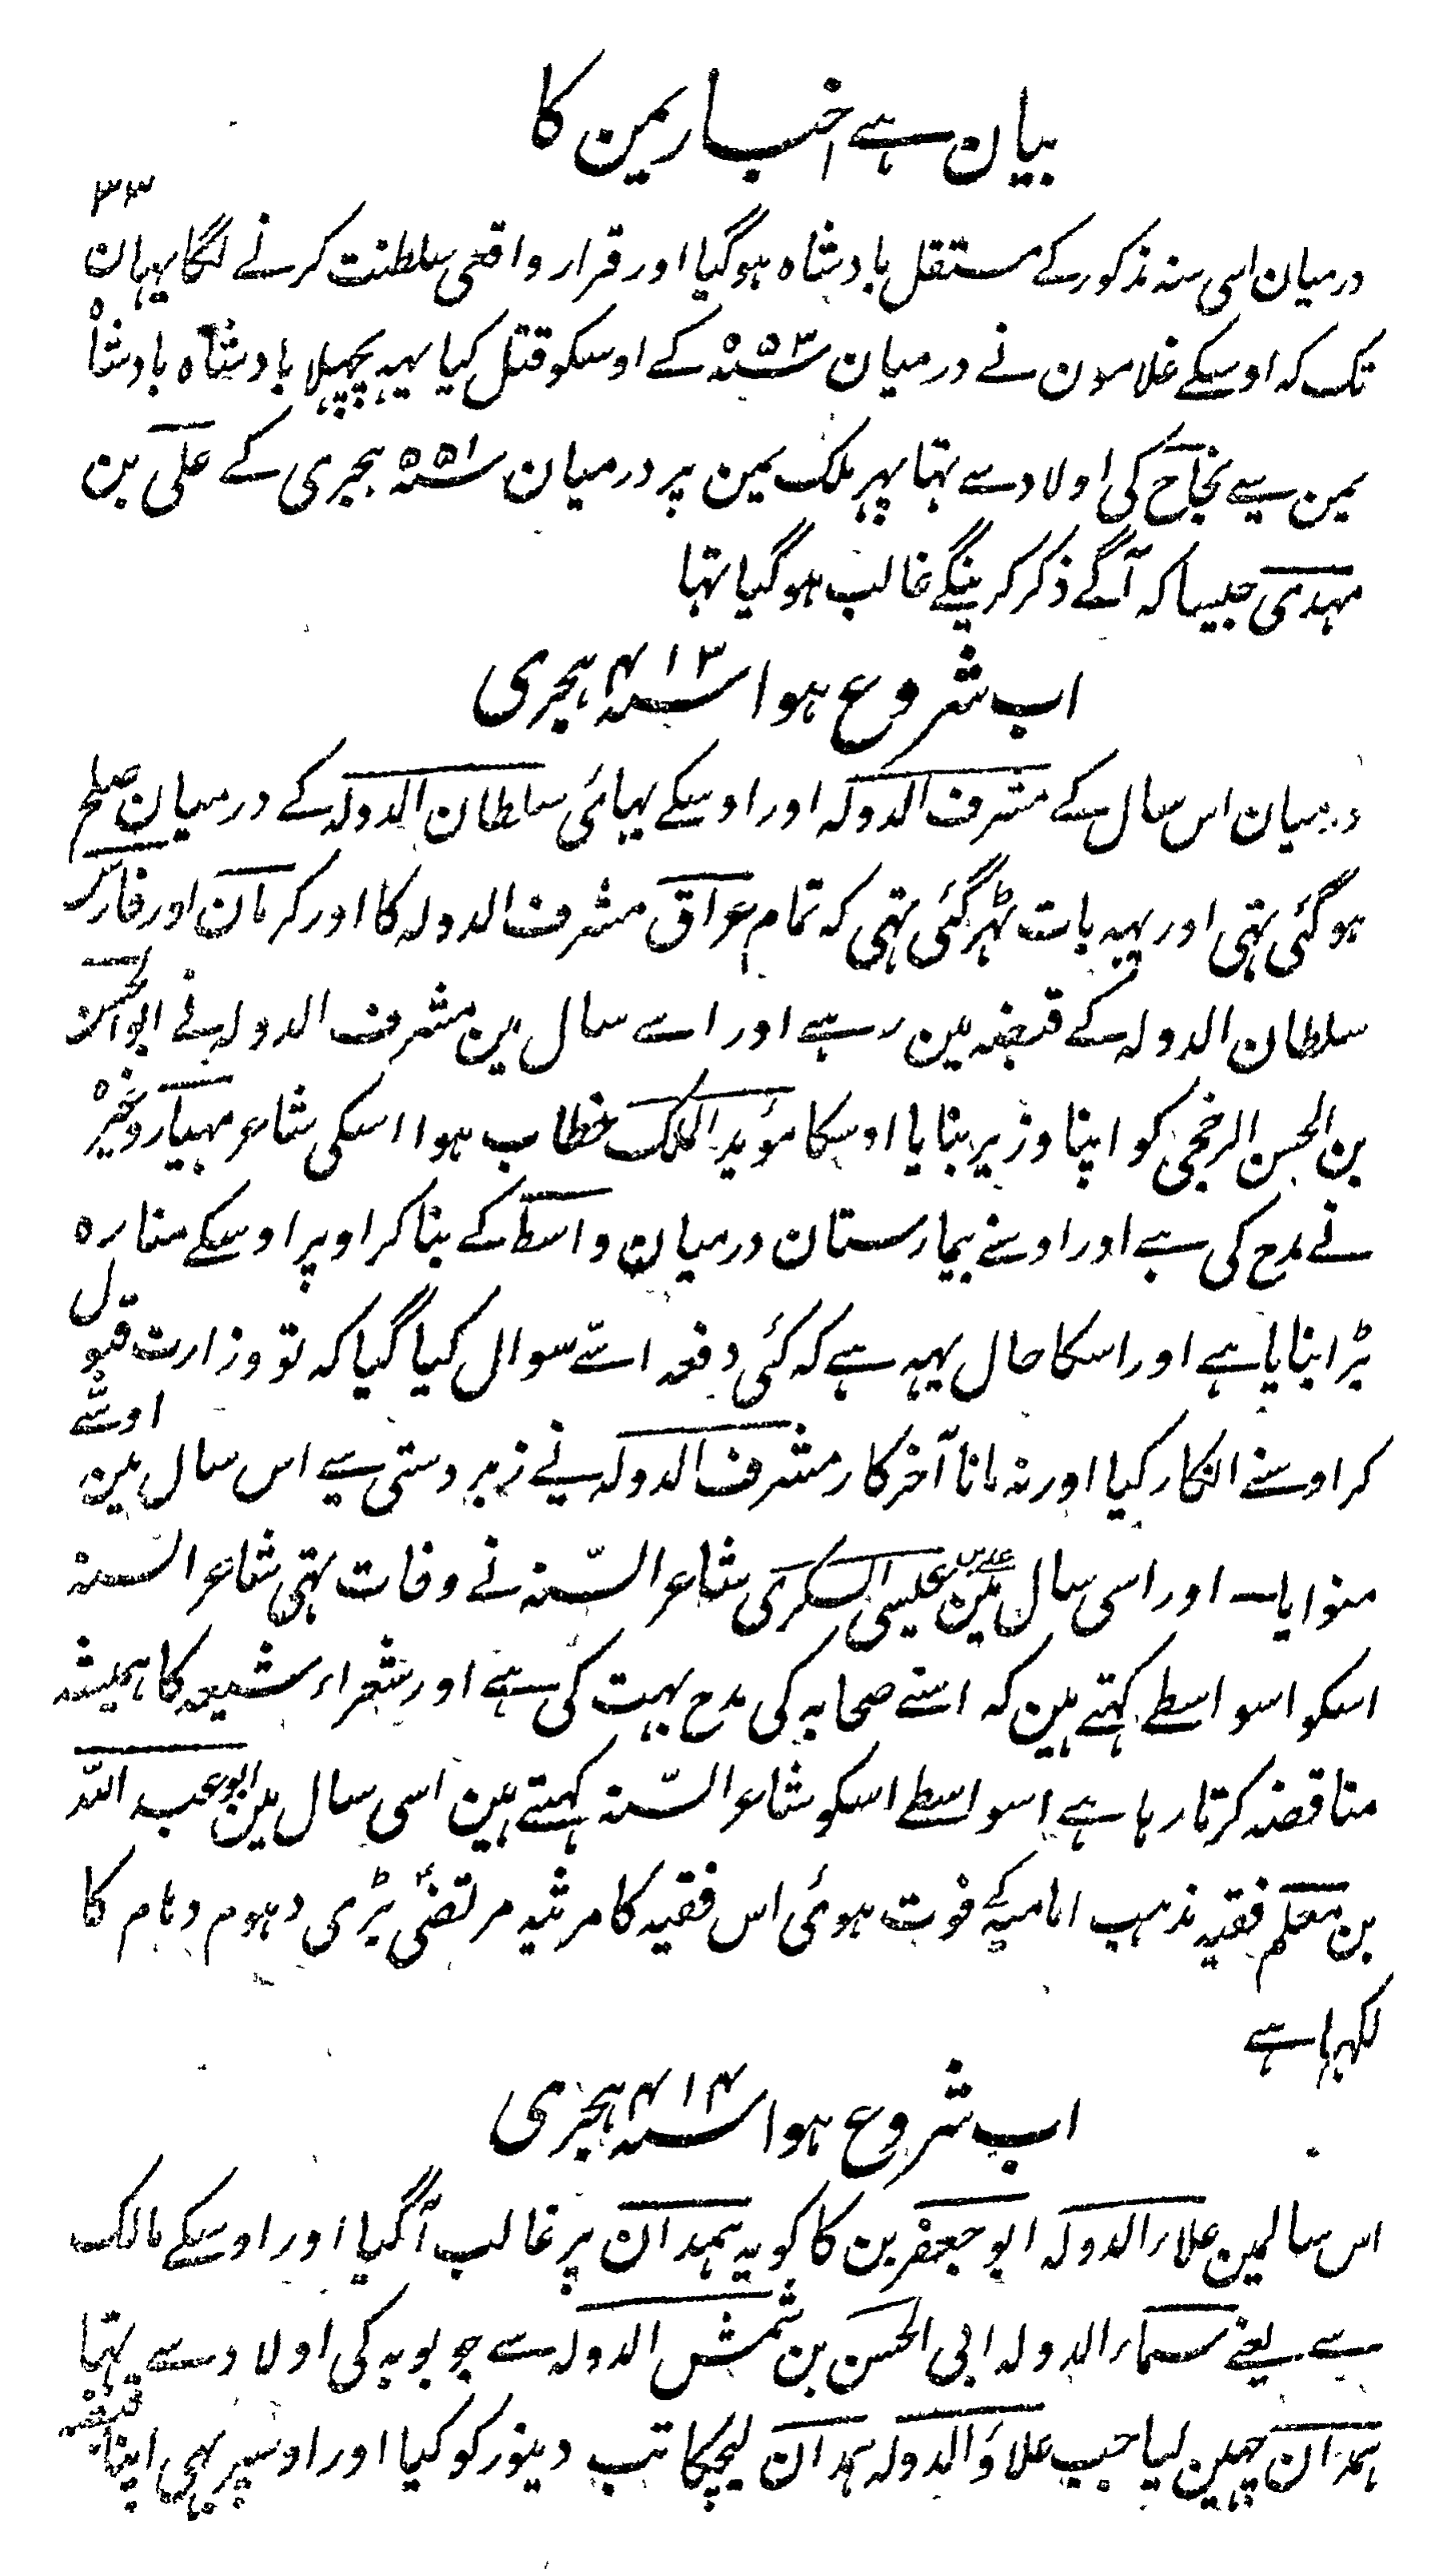 بیان ہے اخبار یمن کا
۳۳
درمیان اسی سنہ مذکور کے مستقل بادشاہ ہوگیا اور قرار واقعی سلطنت کرنے لگا یہان
تک کہ اوسکے غلامون نے درمیان ۵۵۳ سنہ کے اوسکو قتل کیا یہہ پچھلا بادشاہ بادشاہ
یمن سے نجاح کی اولاد سے تہا پہر ملک یمن پر درمیان ۵۵۱ سنہ ہجری کے علی بن
مہدی جیسا کہ آگے ذکر کرینگے غالب ہوگیا تہا
اب شروع ہوا ۴۱۳ سنہ ہجری
درمیان اس سال کے مشرف الدولہ اور اوسکے بہائی سلطان الدولہ کے درمیان صلح
ہوگئی تہی اور یہہ بات ٹہر گئی تہی کہ تمام عراق مشرف الدولہ کا اور کرمان اور فارس
سلطان الدولہ کے قبضہ مین رہے اور اسے سال مین مشرف الدولہ نے ابوالحسن
بن الحسن الرخجی کو اپنا وزیر بنایا اوسکا مؤید الملک خطاب ہوا اسکی شاعر مہیار وغیرہ
نے مدح کی ہے اور اوسنے بیمارستان درمیان واسط کے بنا کر اوپر اوسکے منارہ
بڑا بنایا ہے اور اسکا حال یہہ ہے کہ کئی دفعہ اسّے سوال کیا گیا کہ تو وزارت قبول
کر اوسنے انکار کیا اور نہ مانا آخرکار مشرف الدولہ نے زبردستی سے اس سال مین اوسّے
منوایا۔ اور اسی سال مین علی بن عیسی السکری شاعر السّنہ نے وفات تہی شاعر السنہ
اسکو اسواسطے کہتے ہین کہ اسنے صحابہ کی مدح بہت کی ہے اور شعراء شیعہ کا ہمیشہ
مناقضہ کرتا رہا ہے اسواسطے اسکو شاعر السّنہ کہتے ہین اسی سال مین ابو عبد اللہ
بن معلم فقیہ مذہب امامیہ کے فوت ہوئی اس فقیہ کا مرثیہ مرتضیٰ بڑی دہوم دہام کا
لکہا ہے
اب شروع ہوا ۴۱۴ سنہ ہجری
اس سالمین علاء الدولہ ابو جعفر بن کاکویہ ہمدان پر غالب آگیا اور اوسکے مالک
سے یعنے سماء الدولہ ابی الحسن بن شمس الدولہ سے جو بویہ کی اولاد سے تہا
ہمدان چہین لیا جب علاؤ الدولہ ہمدان لیچکا تب دینور کو کیا اور اوسپر بہی اپنا قبضہ